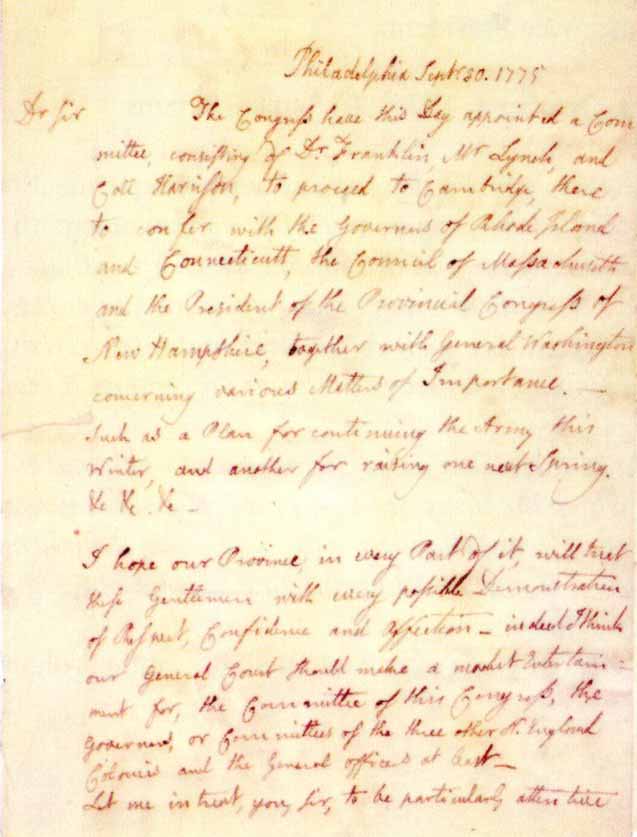 Philadelphia Septr. 30. 1775
Dr Sir The Congress have this Day appointed a Com
mittee, consisting of Dr. Franklin, Mr Lynch, and
Coll Harrison, to proceed to Cambridge, there
to confer with the Governers of Rhode Island
and Connecticutt, the Council of Massachusetts
and the President of the Provincial Congress of
New Hampshire, together with General Washington
concerning various Matters of Importance. —
Such as a Plan for continuing the Army this
Winter, and another for raising one next Spring.
&c &c &c —
I hope our Province, in every Part of it, will treat
these Gentlemen with every possible Demonstration
of Respect, Confidence and Affection — indeed I think
our General Court should make a modest Entertain=
ment for, the Committee of this Congress, the
Governers, or Committees of the three other N. England
Colonies and the General officers at least —
Let me intreat, you, Sir, to be particularly attentive